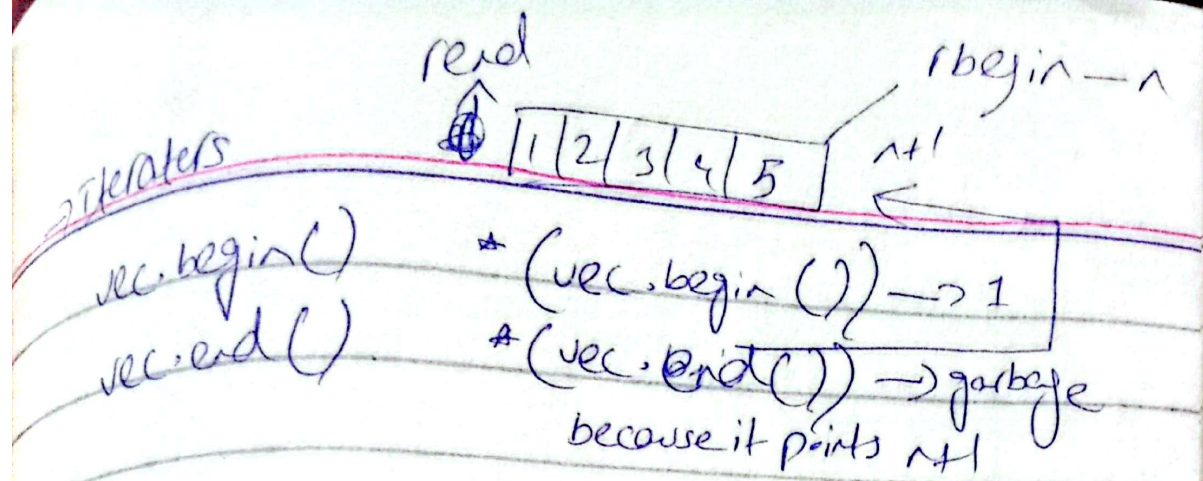 rend
rbegin - n
1 2 3 4 5
n+1
→ iteraters
vec.begin() *(vec.begin()) → 1
vec.end() *(vec.end()) → garbage
because it points n+1